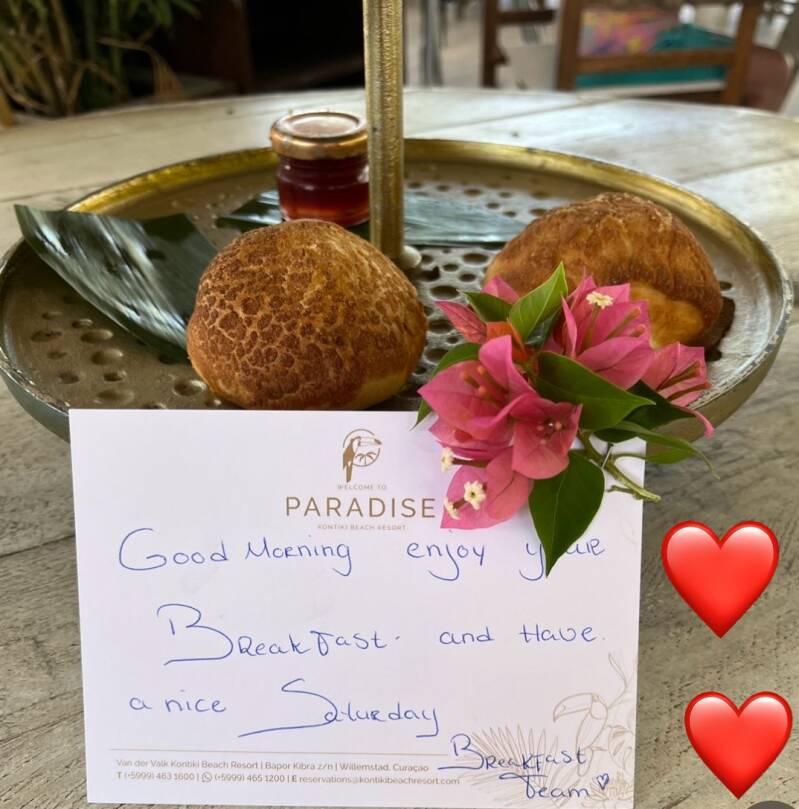 WELCOME TO
PARADISE
KONTIKI BEACH RESORT
Good Morning enjoy youre
Breakfast. and Have.
a nice Saturday
Breakfast
Team
Van der Valk Kontiki Beach Resort | Bapor Kibra z/n | Willemstad, Curaçao
T (+5999) 463 1600 | (+5999) 465 1200 | E reservations@kontikibeachresort.com